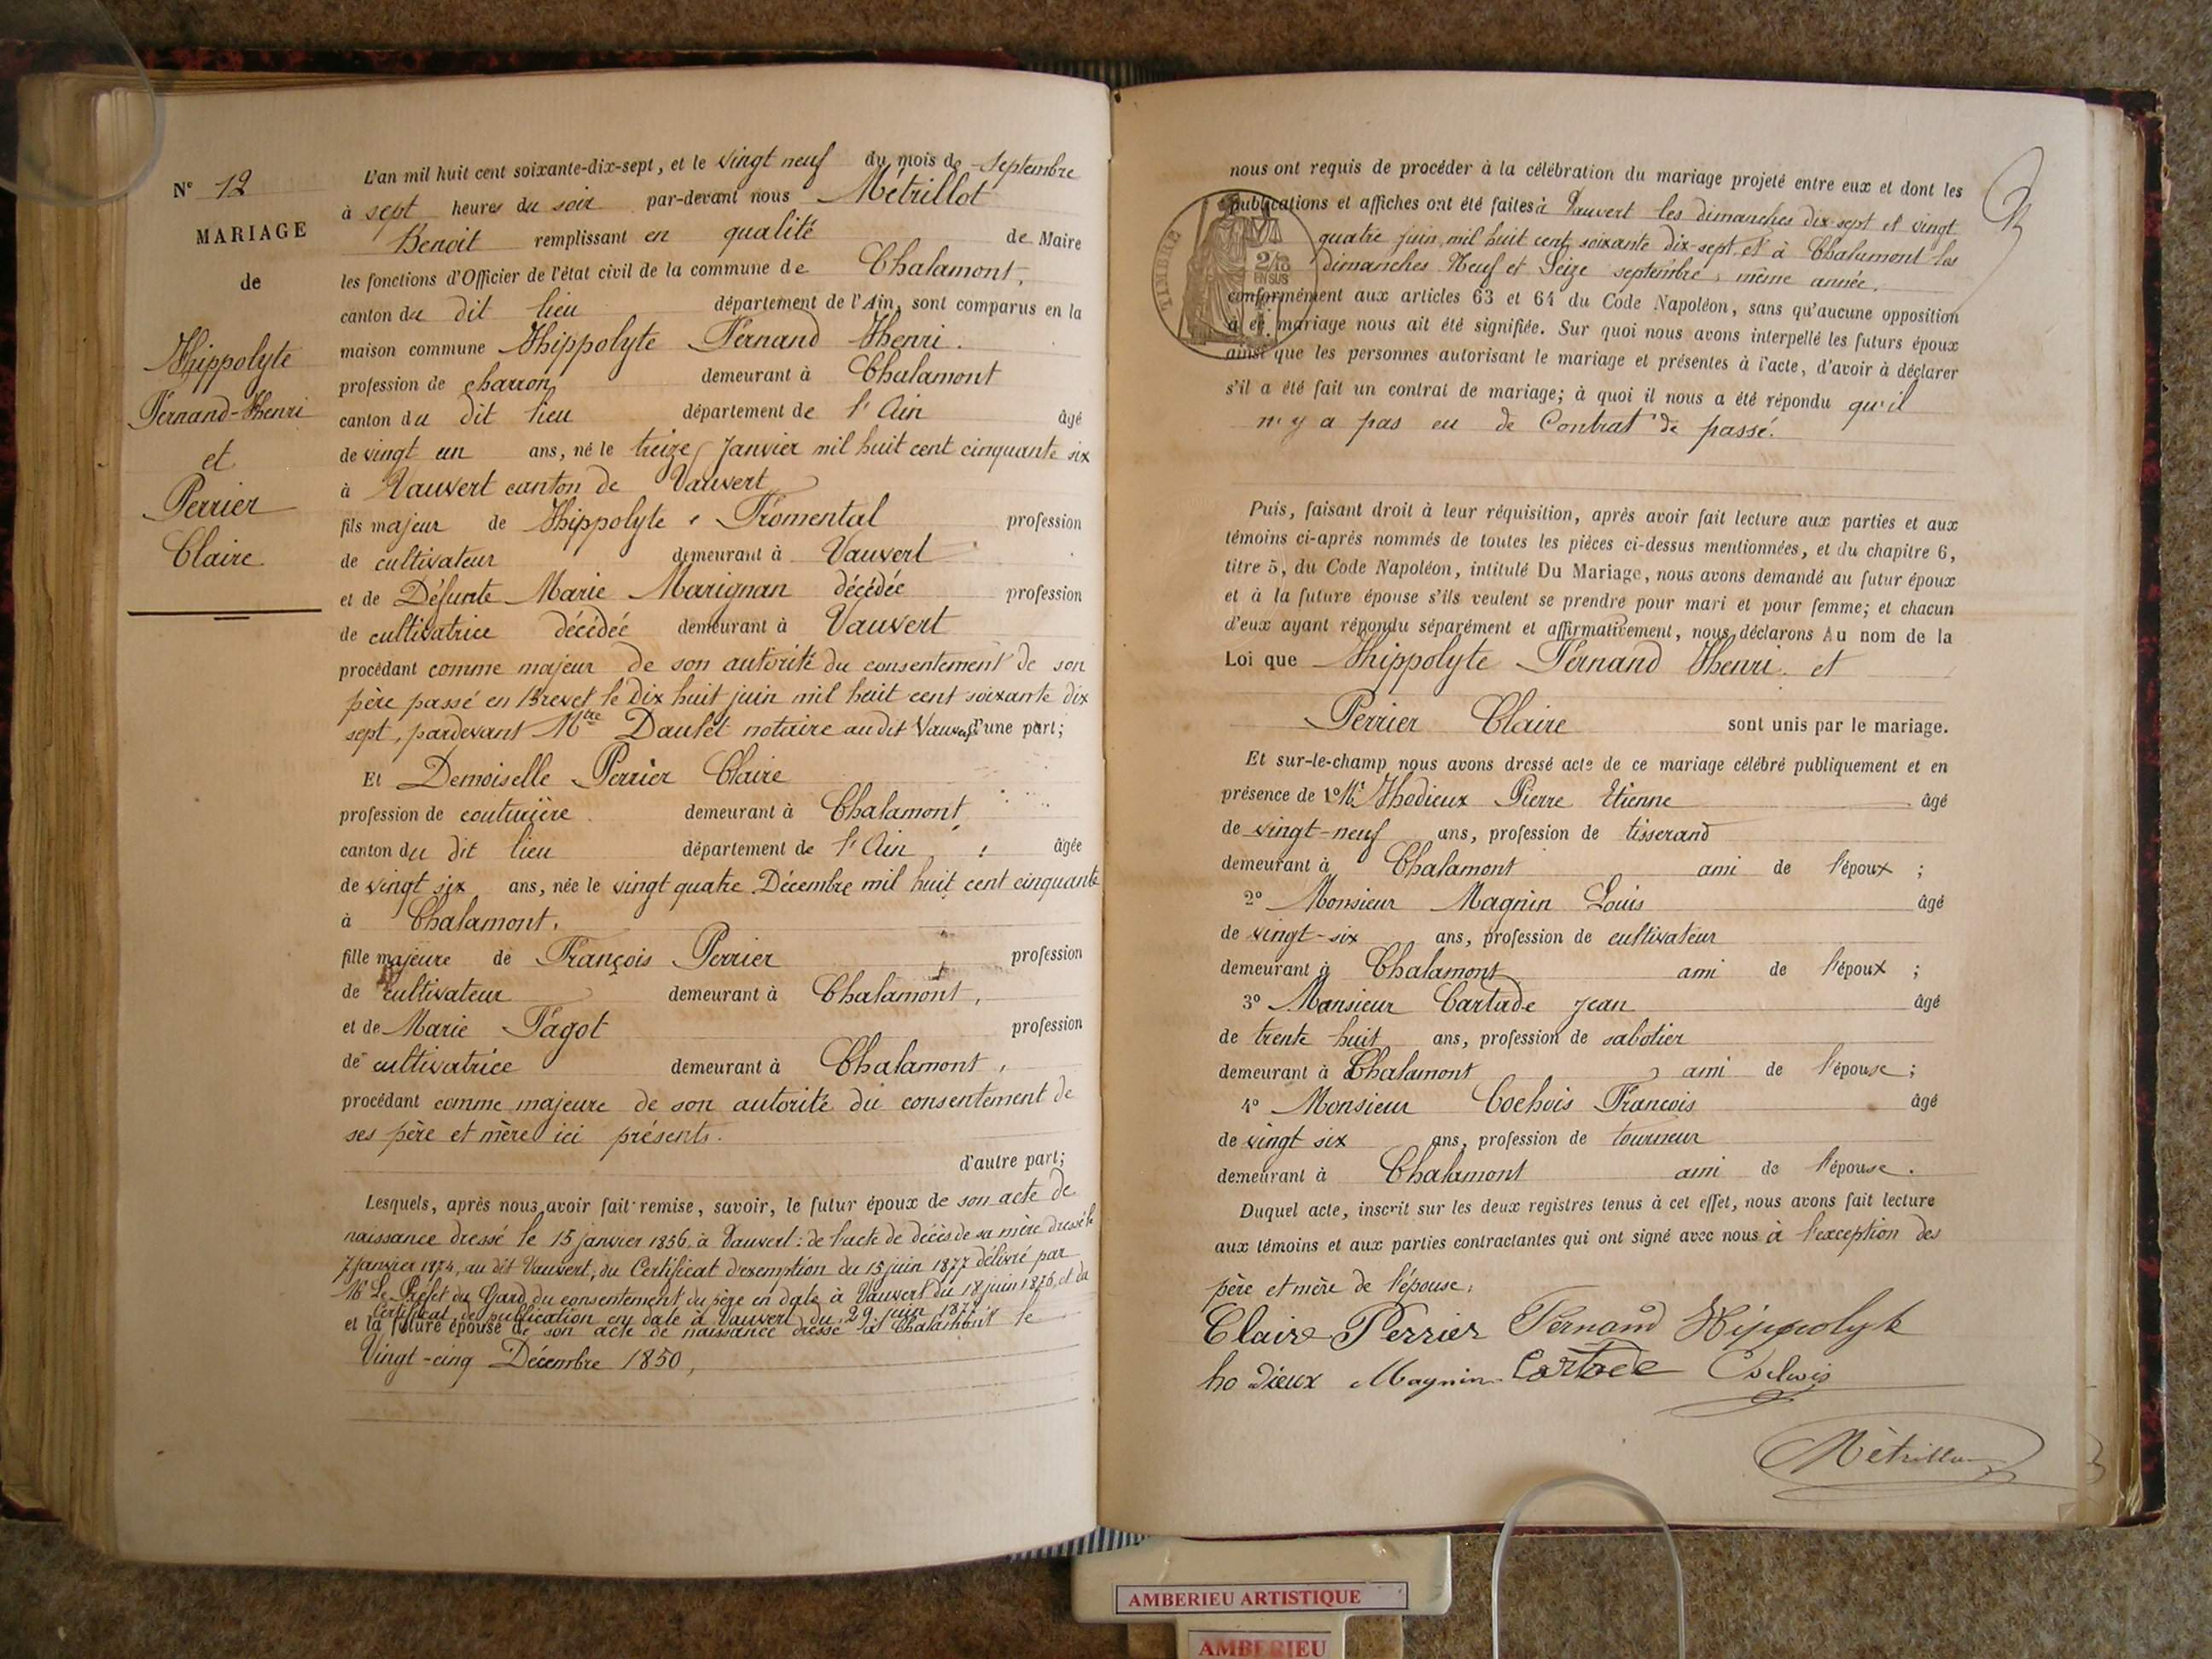 N° 12
MARIAGE
de
Hippolyte
Fernand-Henri
et
Perrier
Claire
L'an mil huit cent soixante-dix-sept, et le vingt neuf du mois de Septembre
à sept heures du soir par-devant nous Métrillot
Benoit remplissant en qualité de Maire
les fonctions d'Officier de l'état civil de la commune de Chalamont,
canton du dit lieu département de l'Ain, sont comparus en la
maison commune Hippolyte Fernand Henri.
profession de charron demeurant à Chalamont
canton du dit lieu département de l'Ain âgé
de vingt un ans, né le treize Janvier mil huit cent cinquante six
à Vauvert canton de Vauvert
fils majeur de Hippolyte Fromental profession
de cultivateur demeurant à Vauvert
et de Défunte Marie Marignan décédée profession
de cultivatrice décédée demeurant à Vauvert
procédant comme majeur de son autorité du consentement de son
père passé en Brevet le Dix huit juin mil huit cent soixante dix
sept, pardevant Mtre Daulet notaire au dit Vauvert d'une part;
Et Demoiselle Perrier Claire
profession de couturière demeurant à Chalamont
canton du dit lieu département de l'Ain, âgée
de vingt six ans, née le vingt quatre Décembre mil huit cent cinquante
à Chalamont.
fille majeure de François Perrier profession
de cultivateur demeurant à Chalamont,
et de Marie Pagot profession
de cultivatrice demeurant à Chalamont,
procédant comme majeure de son autorité du consentement de
ses père et mère ici présents.
d'autre part;
Lesquels, après nous avoir fait remise, savoir, le futur époux de son acte de
naissance dressé le 15 janvier 1856, à Vauvert: de l'acte de décès de sa mère dressé le
7 janvier 1874, au dit Vauvert, du Certificat d'exemption du 15 juin 1877 délivré par
Mr Le Préfet du Gard, du consentement du père en date à Vauvert du 18 juin 1876, et du
Certificat de publication en date à Vauvert du 29 juin 1877
et la future épouse de son acte de naissance dressé à Chalamont le
Vingt-cinq Décembre 1850,
nous ont requis de procéder à la célébration du mariage projeté entre eux et dont les
publications et affiches ont été faites à Vauvert les dimanches dix-sept et vingt
quatre juin mil huit cent soixante dix-sept et à Chalamont les
dimanches Neuf et Seize septembre, même année.
TIMBRE
2/10
EN SUS
conformément aux articles 63 et 64 du Code Napoléon, sans qu'aucune opposition
à ce mariage nous ait été signifiée. Sur quoi nous avons interpellé les futurs époux
ainsi que les personnes autorisant le mariage et présentes à l'acte, d'avoir à déclarer
s'il a été fait un contrat de mariage; à quoi il nous a été répondu qu'il
n'y a pas eu de Contrat de passé.
Puis, faisant droit à leur réquisition, après avoir fait lecture aux parties et aux
témoins ci-après nommés de toutes les pièces ci-dessus mentionnées, et du chapitre 6,
titre 5, du Code Napoléon, intitulé Du Mariage, nous avons demandé au futur époux
et à la future épouse s'ils veulent se prendre pour mari et pour femme; et chacun
d'eux ayant répondu séparément et affirmativement, nous déclarons Au nom de la
Loi que Hippolyte Fernand Henri et
Perrier Claire sont unis par le mariage.
Et sur-le-champ nous avons dressé acte de ce mariage célébré publiquement et en
présence de 1° Mr Hodieux Pierre Etienne âgé
de vingt-neuf ans, profession de tisserand
demeurant à Chalamont ami de l'époux ;
2° Monsieur Magnin Louis âgé
de vingt-six ans, profession de cultivateur
demeurant à Chalamont ami de l'époux ;
3° Monsieur Cartade Jean âgé
de trente huit ans, profession de sabotier
demeurant à Chalamont ami de l'épouse ;
4° Monsieur Cochois Francois âgé
de vingt six ans, profession de tourneur
demeurant à Chalamont ami de l'épouse.
Duquel acte, inscrit sur les deux registres tenus à cet effet, nous avons fait lecture
aux témoins et aux parties contractantes qui ont signé avec nous à l'exception des
père et mère de l'épouse.
Claire Perrier Fernand Hippolyte
ho dieux Magnin Cartade
Métrillot
AMBERIEU ARTISTIQUE
AMBERIEU